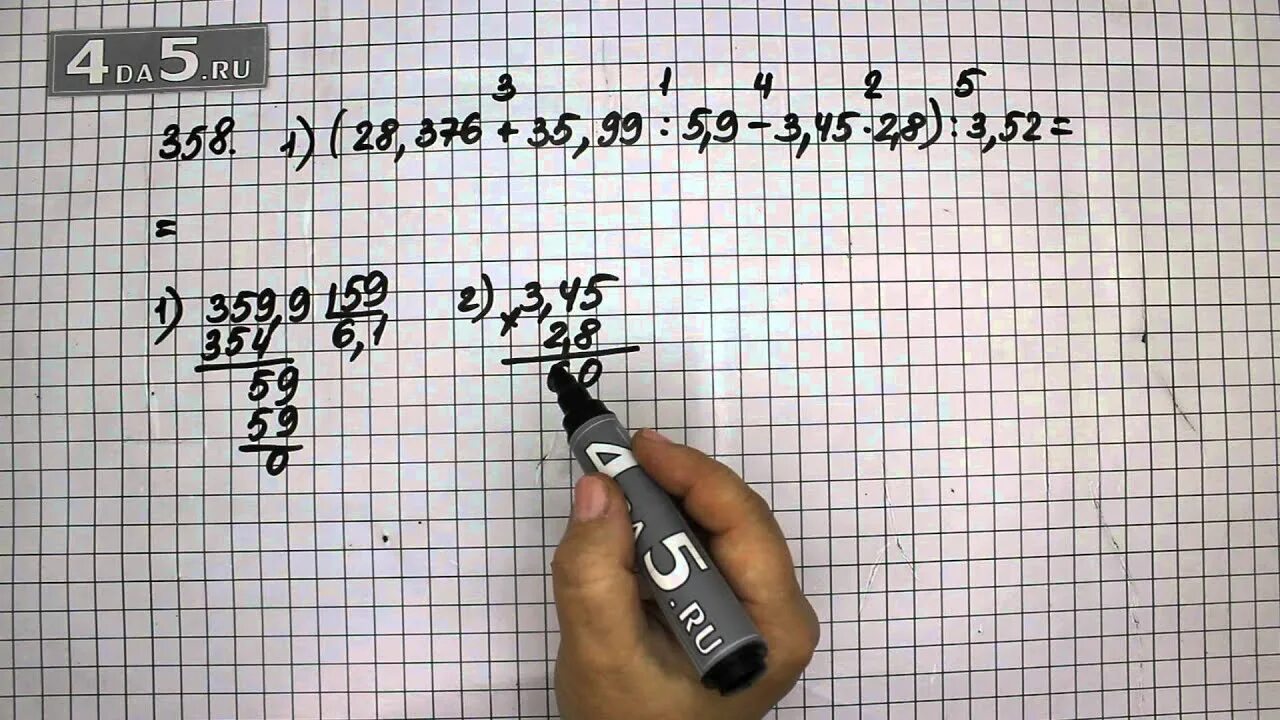 4DA5.RU
3 1 4 2 5
358. 1) (28,376 + 35,99 : 5,9 - 3,45 · 2,8) : 3,52 =
=
1) 359,9 59
354 6,1
59
59
0
2) 3,45
× 2,8
60
4DA5.RU